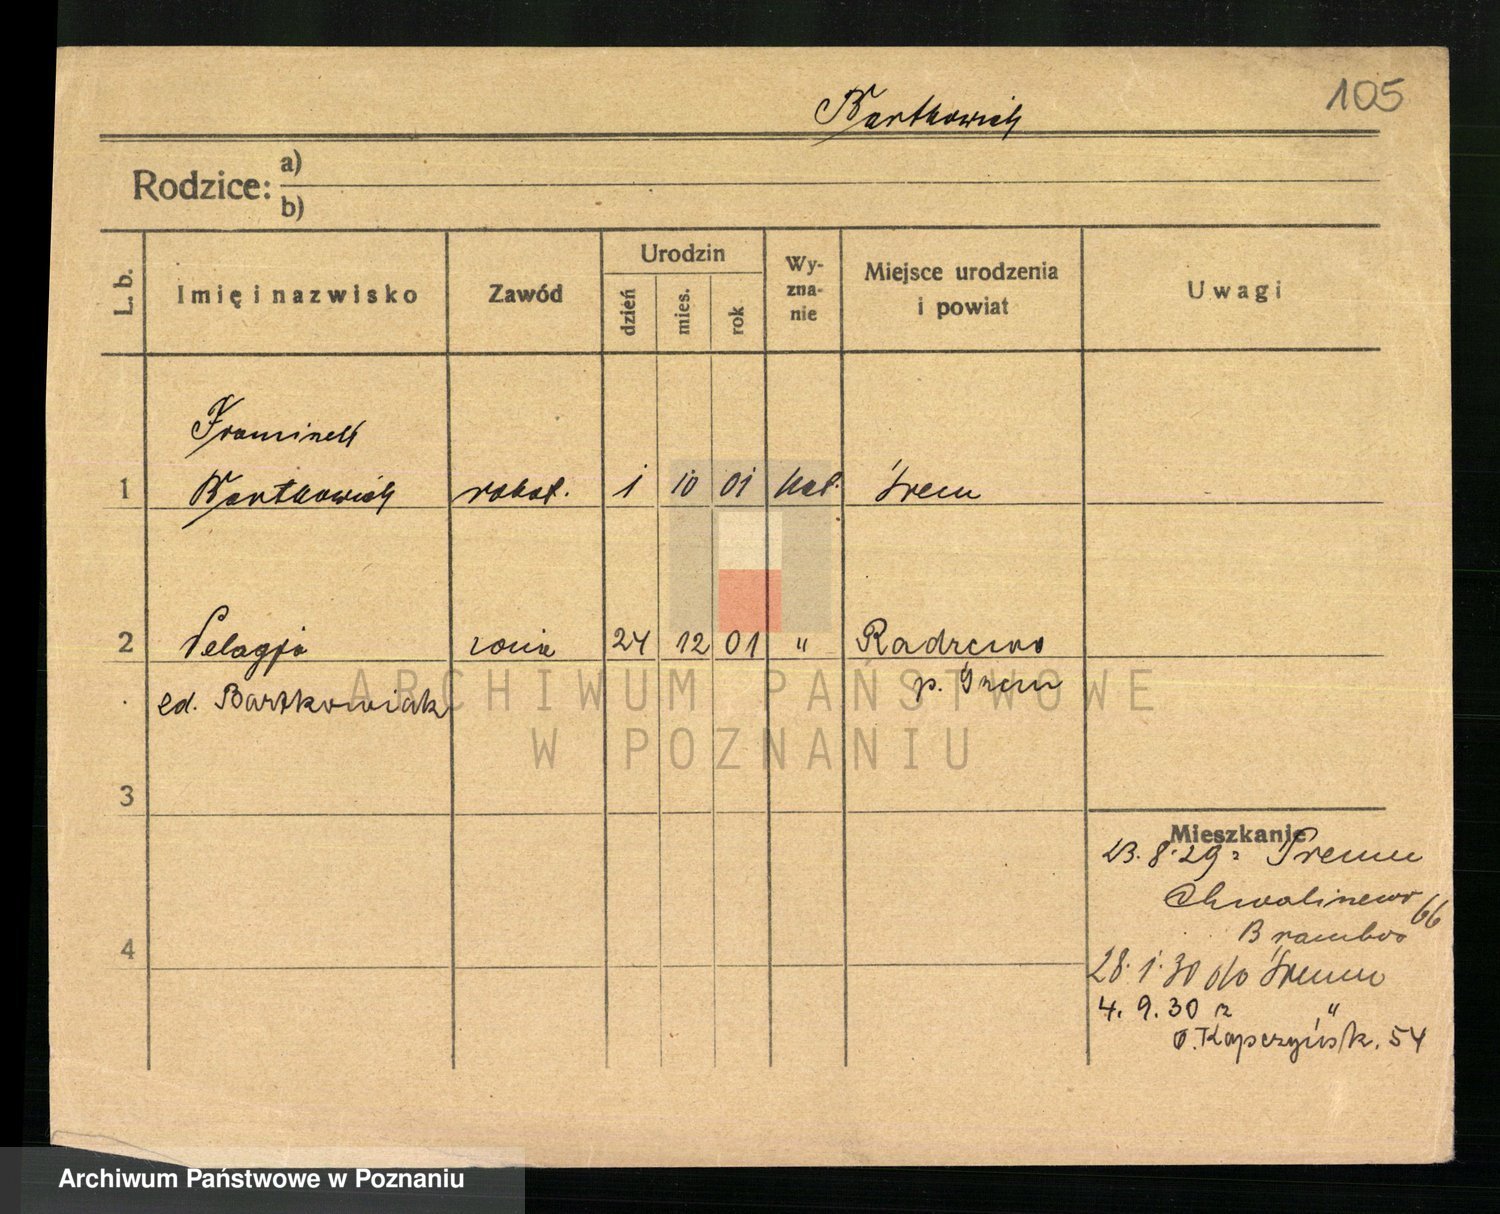 105
Bartkowiak
Rodzice: a)
b)
L. b. Imię i nazwisko Zawód Urodzin dzień mies. rok Wyznanie Miejsce urodzenia i powiat Uwagi
Franciszek
1 Bartkowiak robot. 1 10 01 kat. Śrem
2 Pelagja żona 24 12 01 " Radzewo
p. Śrem
ed. Bartkowiak
ARCHIWUM PAŃSTWOWE
W POZNANIU
3
Mieszkanie
23. 8. 29 z Śremu
66
4
28. 1. 30 do Śremu
4. 9. 30 z "
54
Archiwum Państwowe w Poznaniu